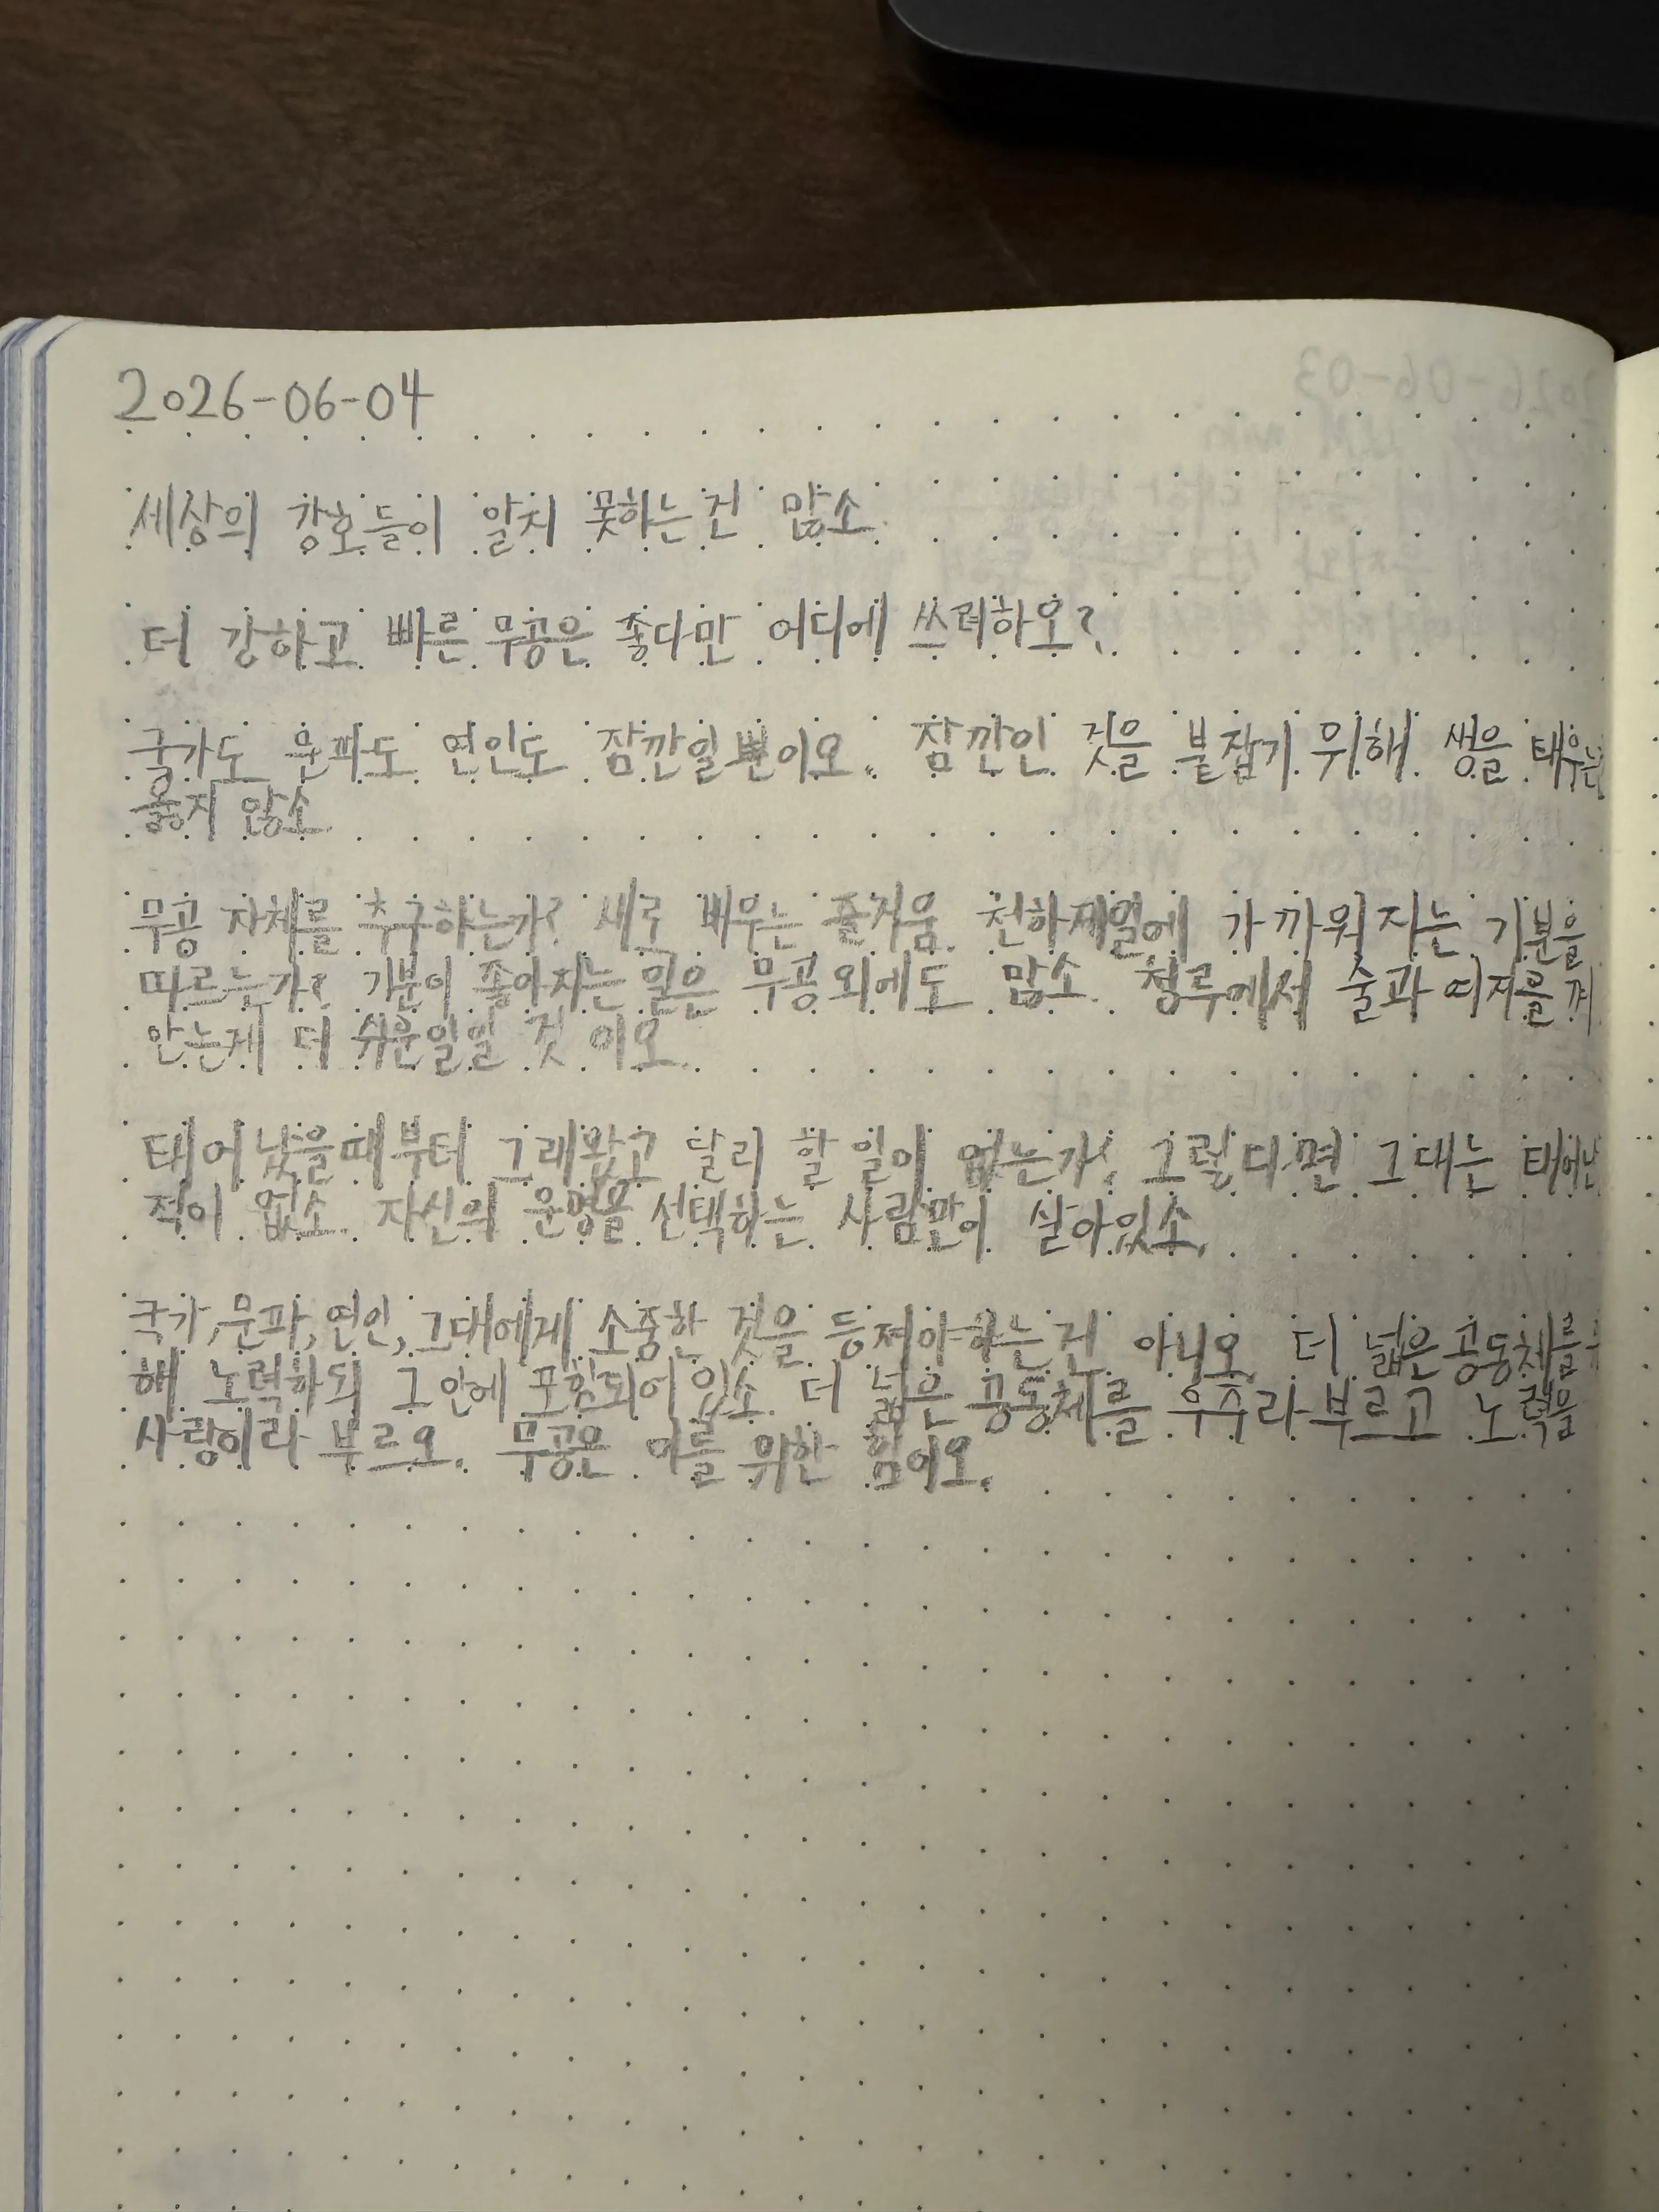 2026-06-04
세상의 강호들이 알지 못하는건 많소.
더 강하고 빠른 무공은 좋다만 어디에 쓰려하오?
국가도 문파도 연인도 잠깐일뿐이오. 잠깐인 것을 붙잡기 위해 생을 태우는
옳지 않소.
무공 자체를 추구하는가? 새로 배우는 즐거움. 천하제일에 가까워지는 기분을
따르는가? 기분이 좋아지는 일은 무공 외에도 많소. 청루에서 술과 여자를 껴
안는게 더 쉬운일일 것 이오.
태어났을때부터 그래왔고 달리 할 일이 없는가? 그렇다면 그대는 태어난
적이 없소. 자신의 운명을 선택하는 사람만이 살아있소.
국가, 문파, 연인, 그대에게 소중한 것을 등져야하는건 아니오. 더 넓은 공동체를
해 노력하되 그 안에 포함되어 있소. 더 넓은 공동체를 우주라 부르고 노력을
사랑이라 부르오. 무공은 이를 위한 힘이오.